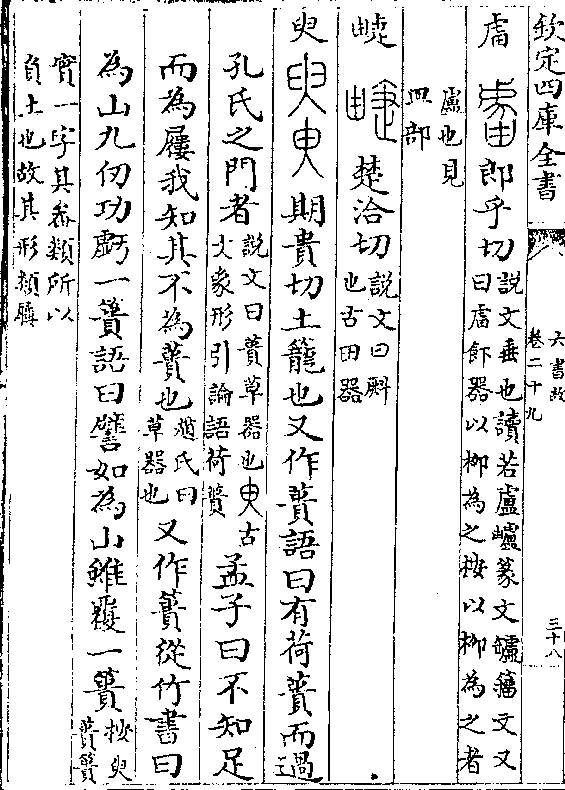 欽定四庫全書
六書故
卷二十九
三十八
𧆨 郎乎切說文𠙹也讀若盧𥂖篆文鑪籀文又
曰𧆨飾器以柳為之按以柳為之者
盧也見
皿部
疀 楚洽切說文曰㪷
也古田器
臾 期貴切土籠也又作蕢語曰有荷蕢而過
孔氏之門者說文曰蕢草器也臾古
文象形引論語荷蕢孟子曰不知足
而為屨我知其不為蕢也趙氏曰
草器也又作簣從竹書曰
為山九仞功虧一簣語曰譬如為山雖覆一簣按臾
蕢簣
實一字其器類所以
負土也故其形類